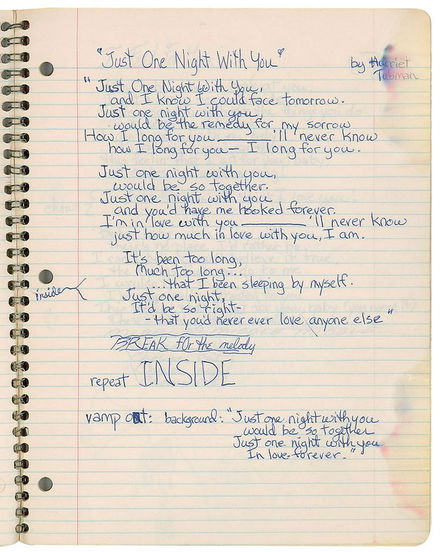 "Just One Night With You"
by Harriet
Tubman
"Just One Night With You,
and I know I could face tomorrow.
Just one night with you,
would be the remedy for my sorrow
How I long for you ______ 'll never know
how I long for you - I long for you.
Just one night with you,
would be so together.
Just one night with you
and you'd have me hooked forever.
I'm in love with you ______ 'll never know
just how much in love with you, I am.
It's been too long,
Much too long...
...that I been sleeping by myself.
inside
Just one night,
It'd be so right-
-that you'd never ever love anyone else"
BREAK for the melody
repeat INSIDE
vamp out: background: "Just one night with you
would be so together
Just one night with you
In love forever."